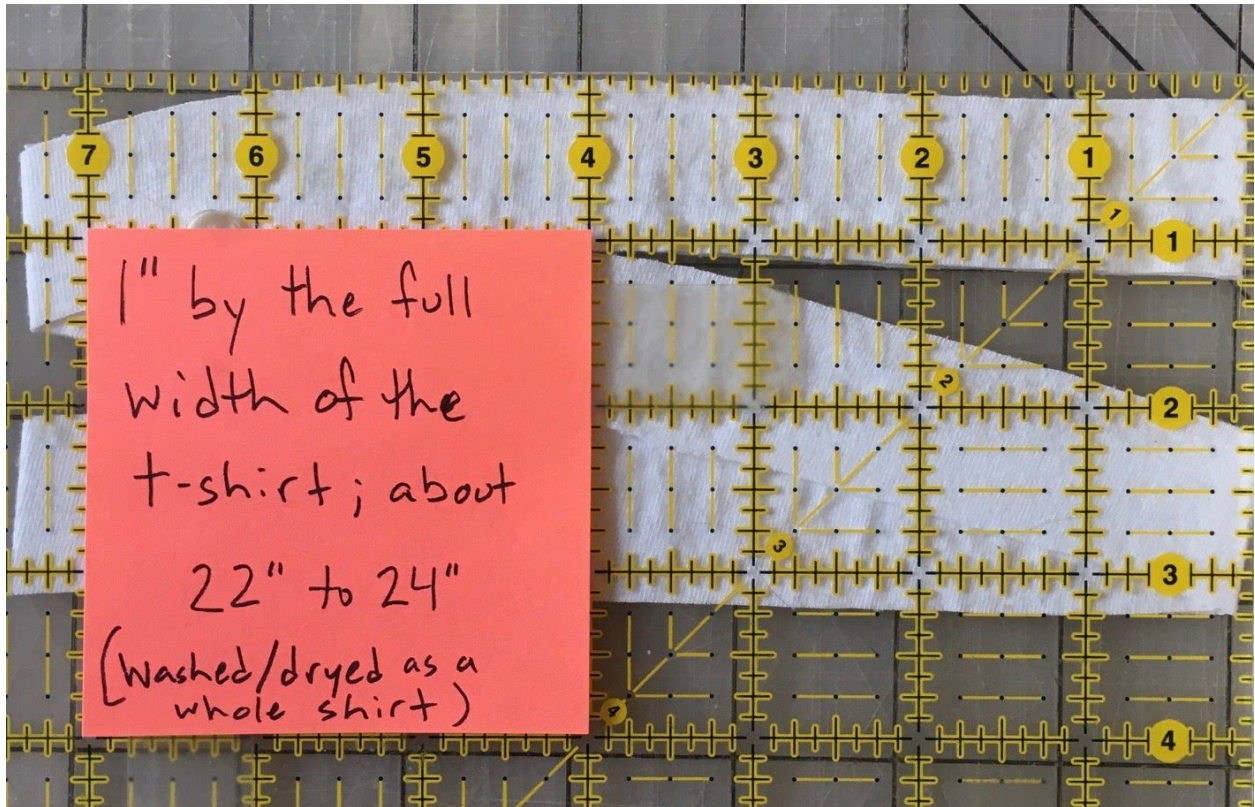 7 6 5 4 3 2 1
1
1
2
2
3
3
4
4
1" by the full
width of the
t-shirt; about
22" to 24"
(washed/dryed as a
whole shirt)